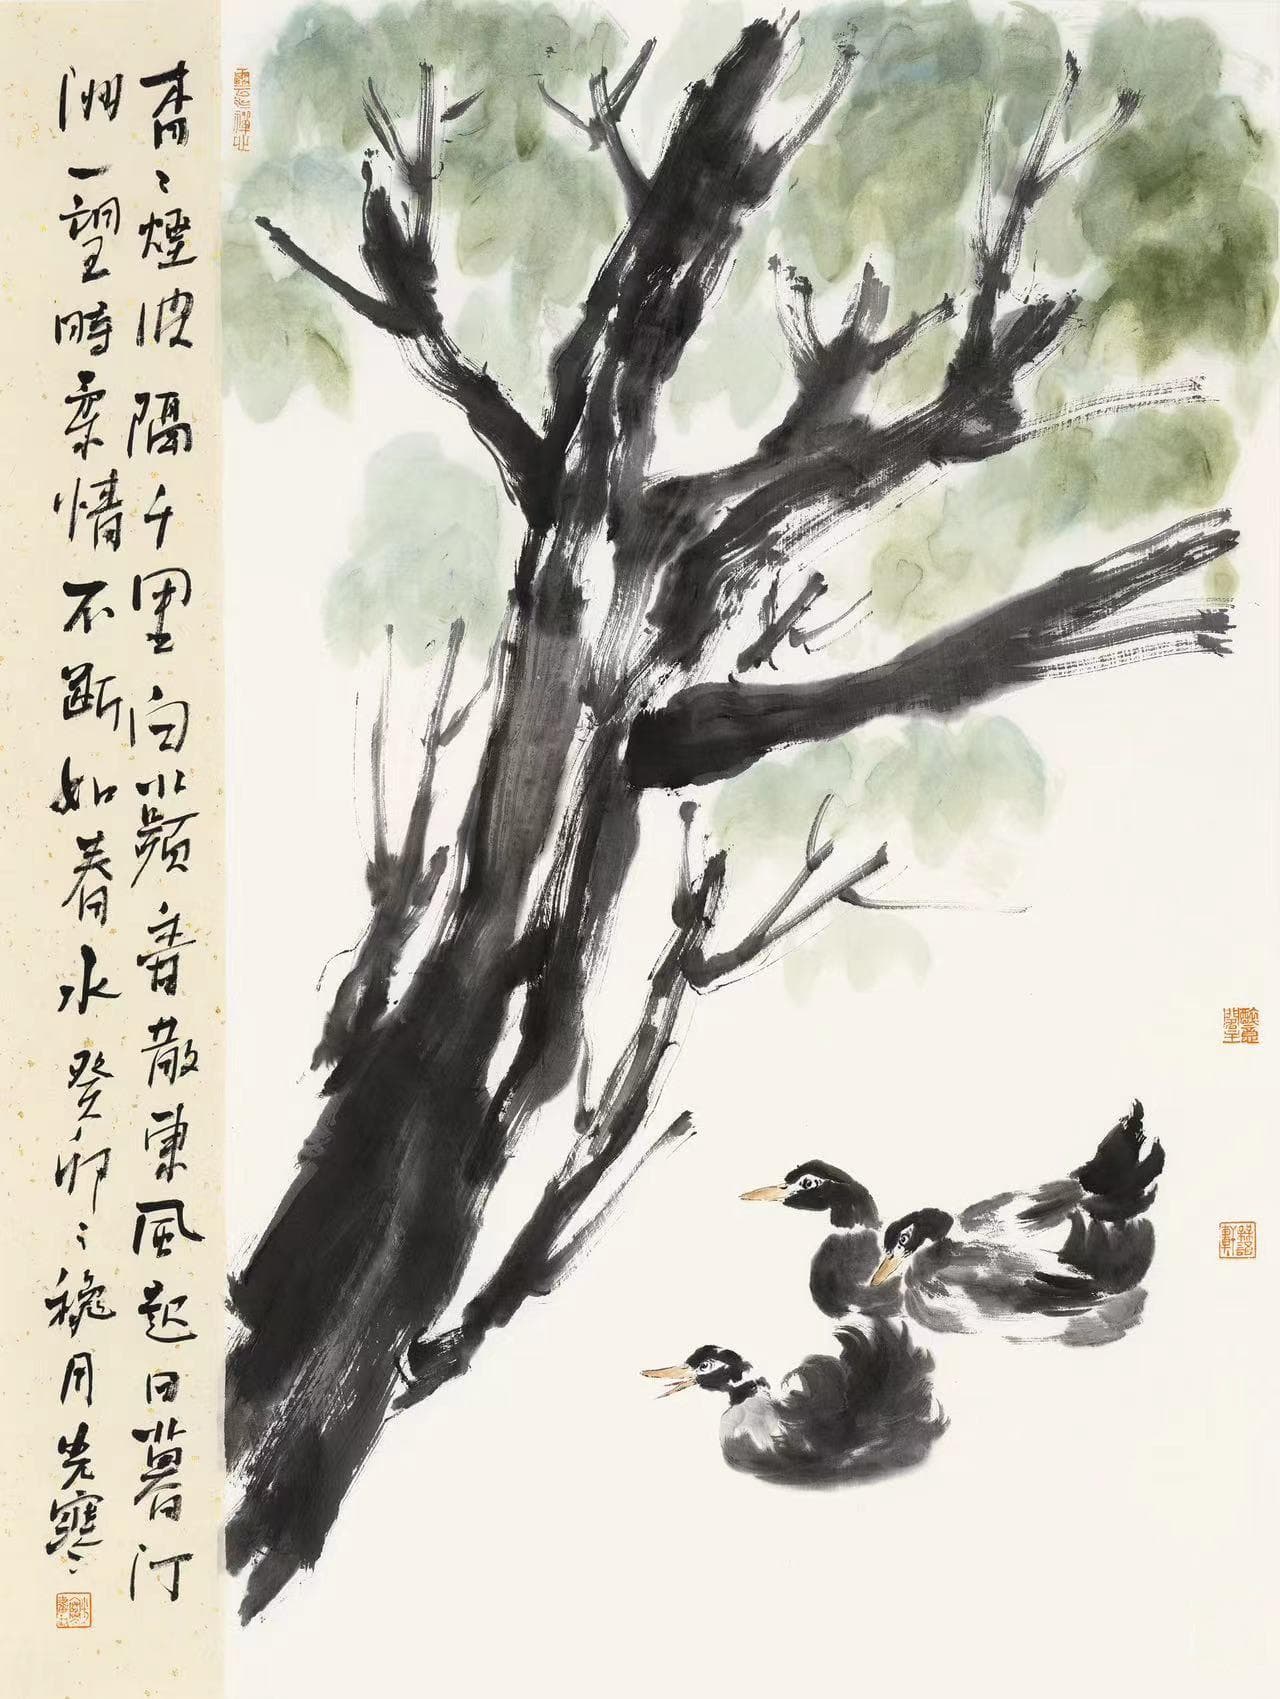 杳〻煙波隔千里白蘋香散東風起日暮汀
洲一望時柔情不斷如春水癸卯之穐月